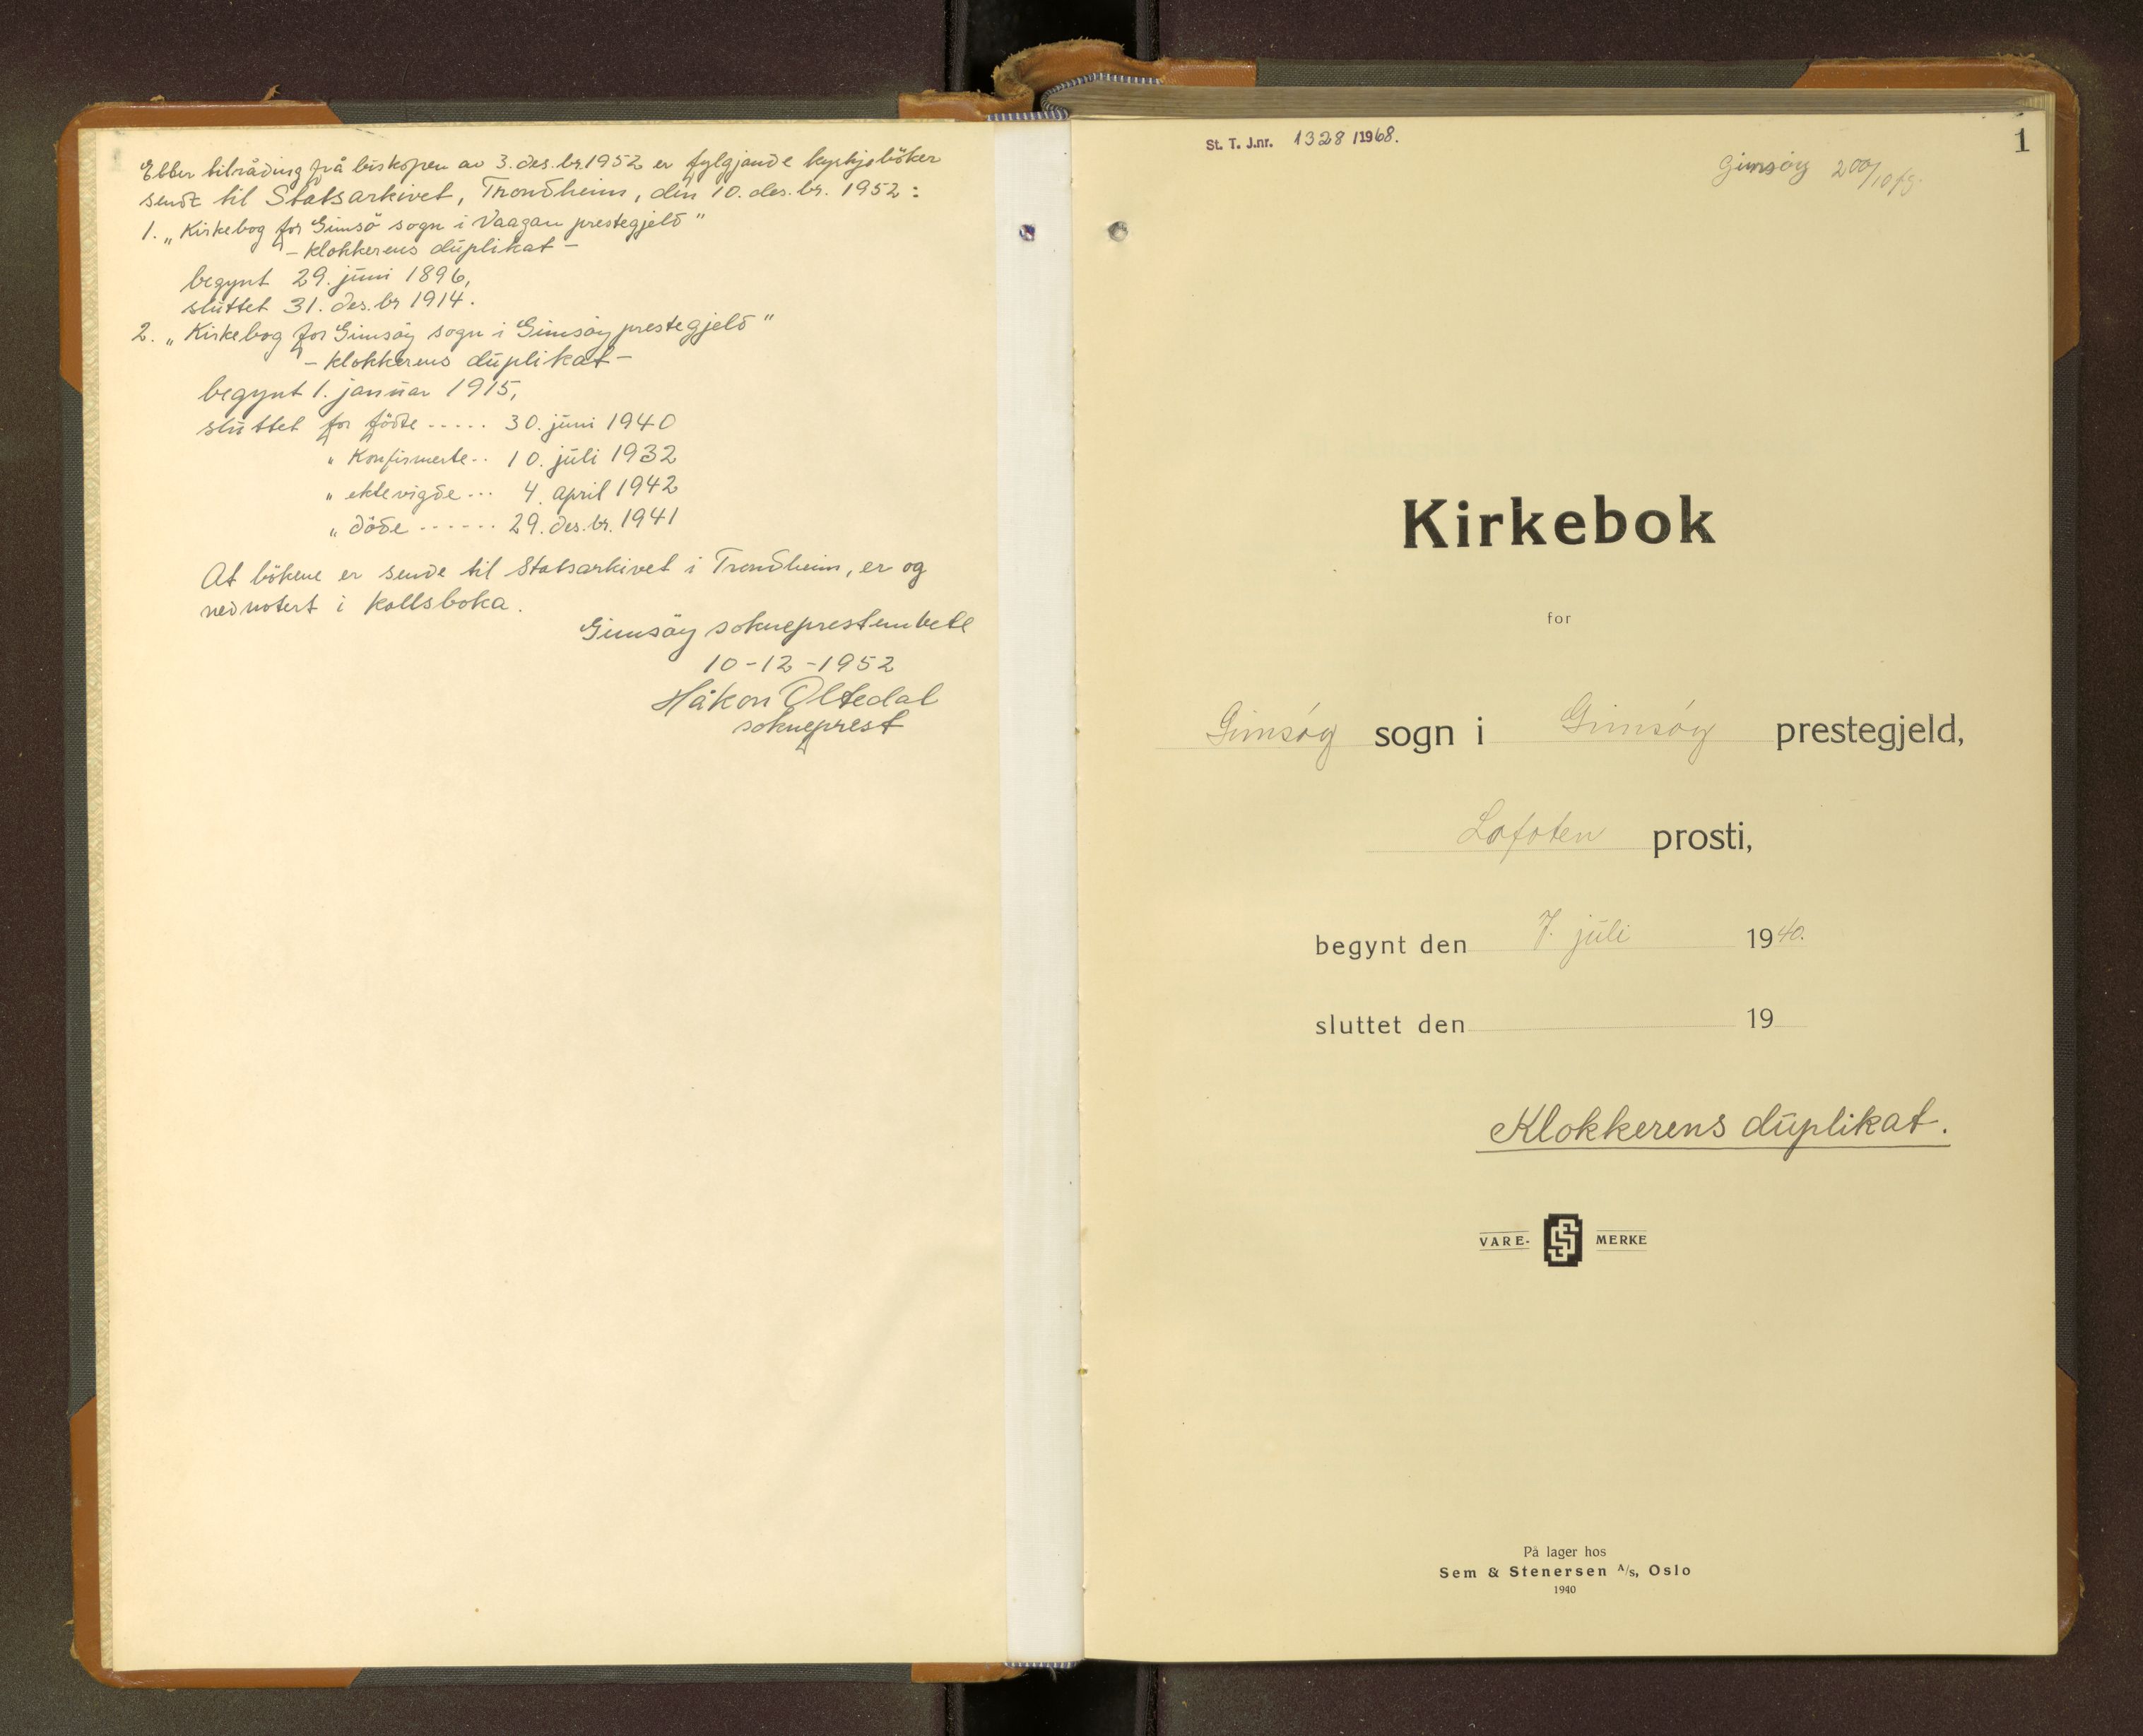 Etter tilråding frå biskopen av 3. des.br. 1952 er fylgjande kyrkjebøker
sendt til Statsarkivet, Trondheim, den 10. des.br. 1952:
1. „Kirkebog for Gimsö sogn i Vaagan prestegjeld"
- klokkerens duplikat -
begynt 29. juni 1896,
sluttet 31. des.br 1914.
2. „Kirkebog for Gimsöy sogn i Gimsöy prestegjeld"
- klokkerens duplikat -
begynt 1. januar 1915,
sluttet for födte ----- 30. juni 1940
„ Konfirmerte -- 10. juli 1932
„ ektevigde --- 4. april 1942
„ döde ------ 29. des.br. 1941
At bökene er sende til Statsarkivet i Trondheim, er og
nednotert i kallsboka.
Gimsöy sokneprestembete
10-12-1952
Håkon Oltedal
sokneprest
St. T. J.nr. 1328 /1968.
1
Gimsøy 200/10
Kirkebok
for
Gimsøy sogn i Gimsøy prestegjeld,
Lofoten prosti,
begynt den 7. juli 1940.
sluttet den 19
Klokkerens duplikat.
VARE- MERKE
På lager hos
Sem & Stenersen A/s, Oslo
1940